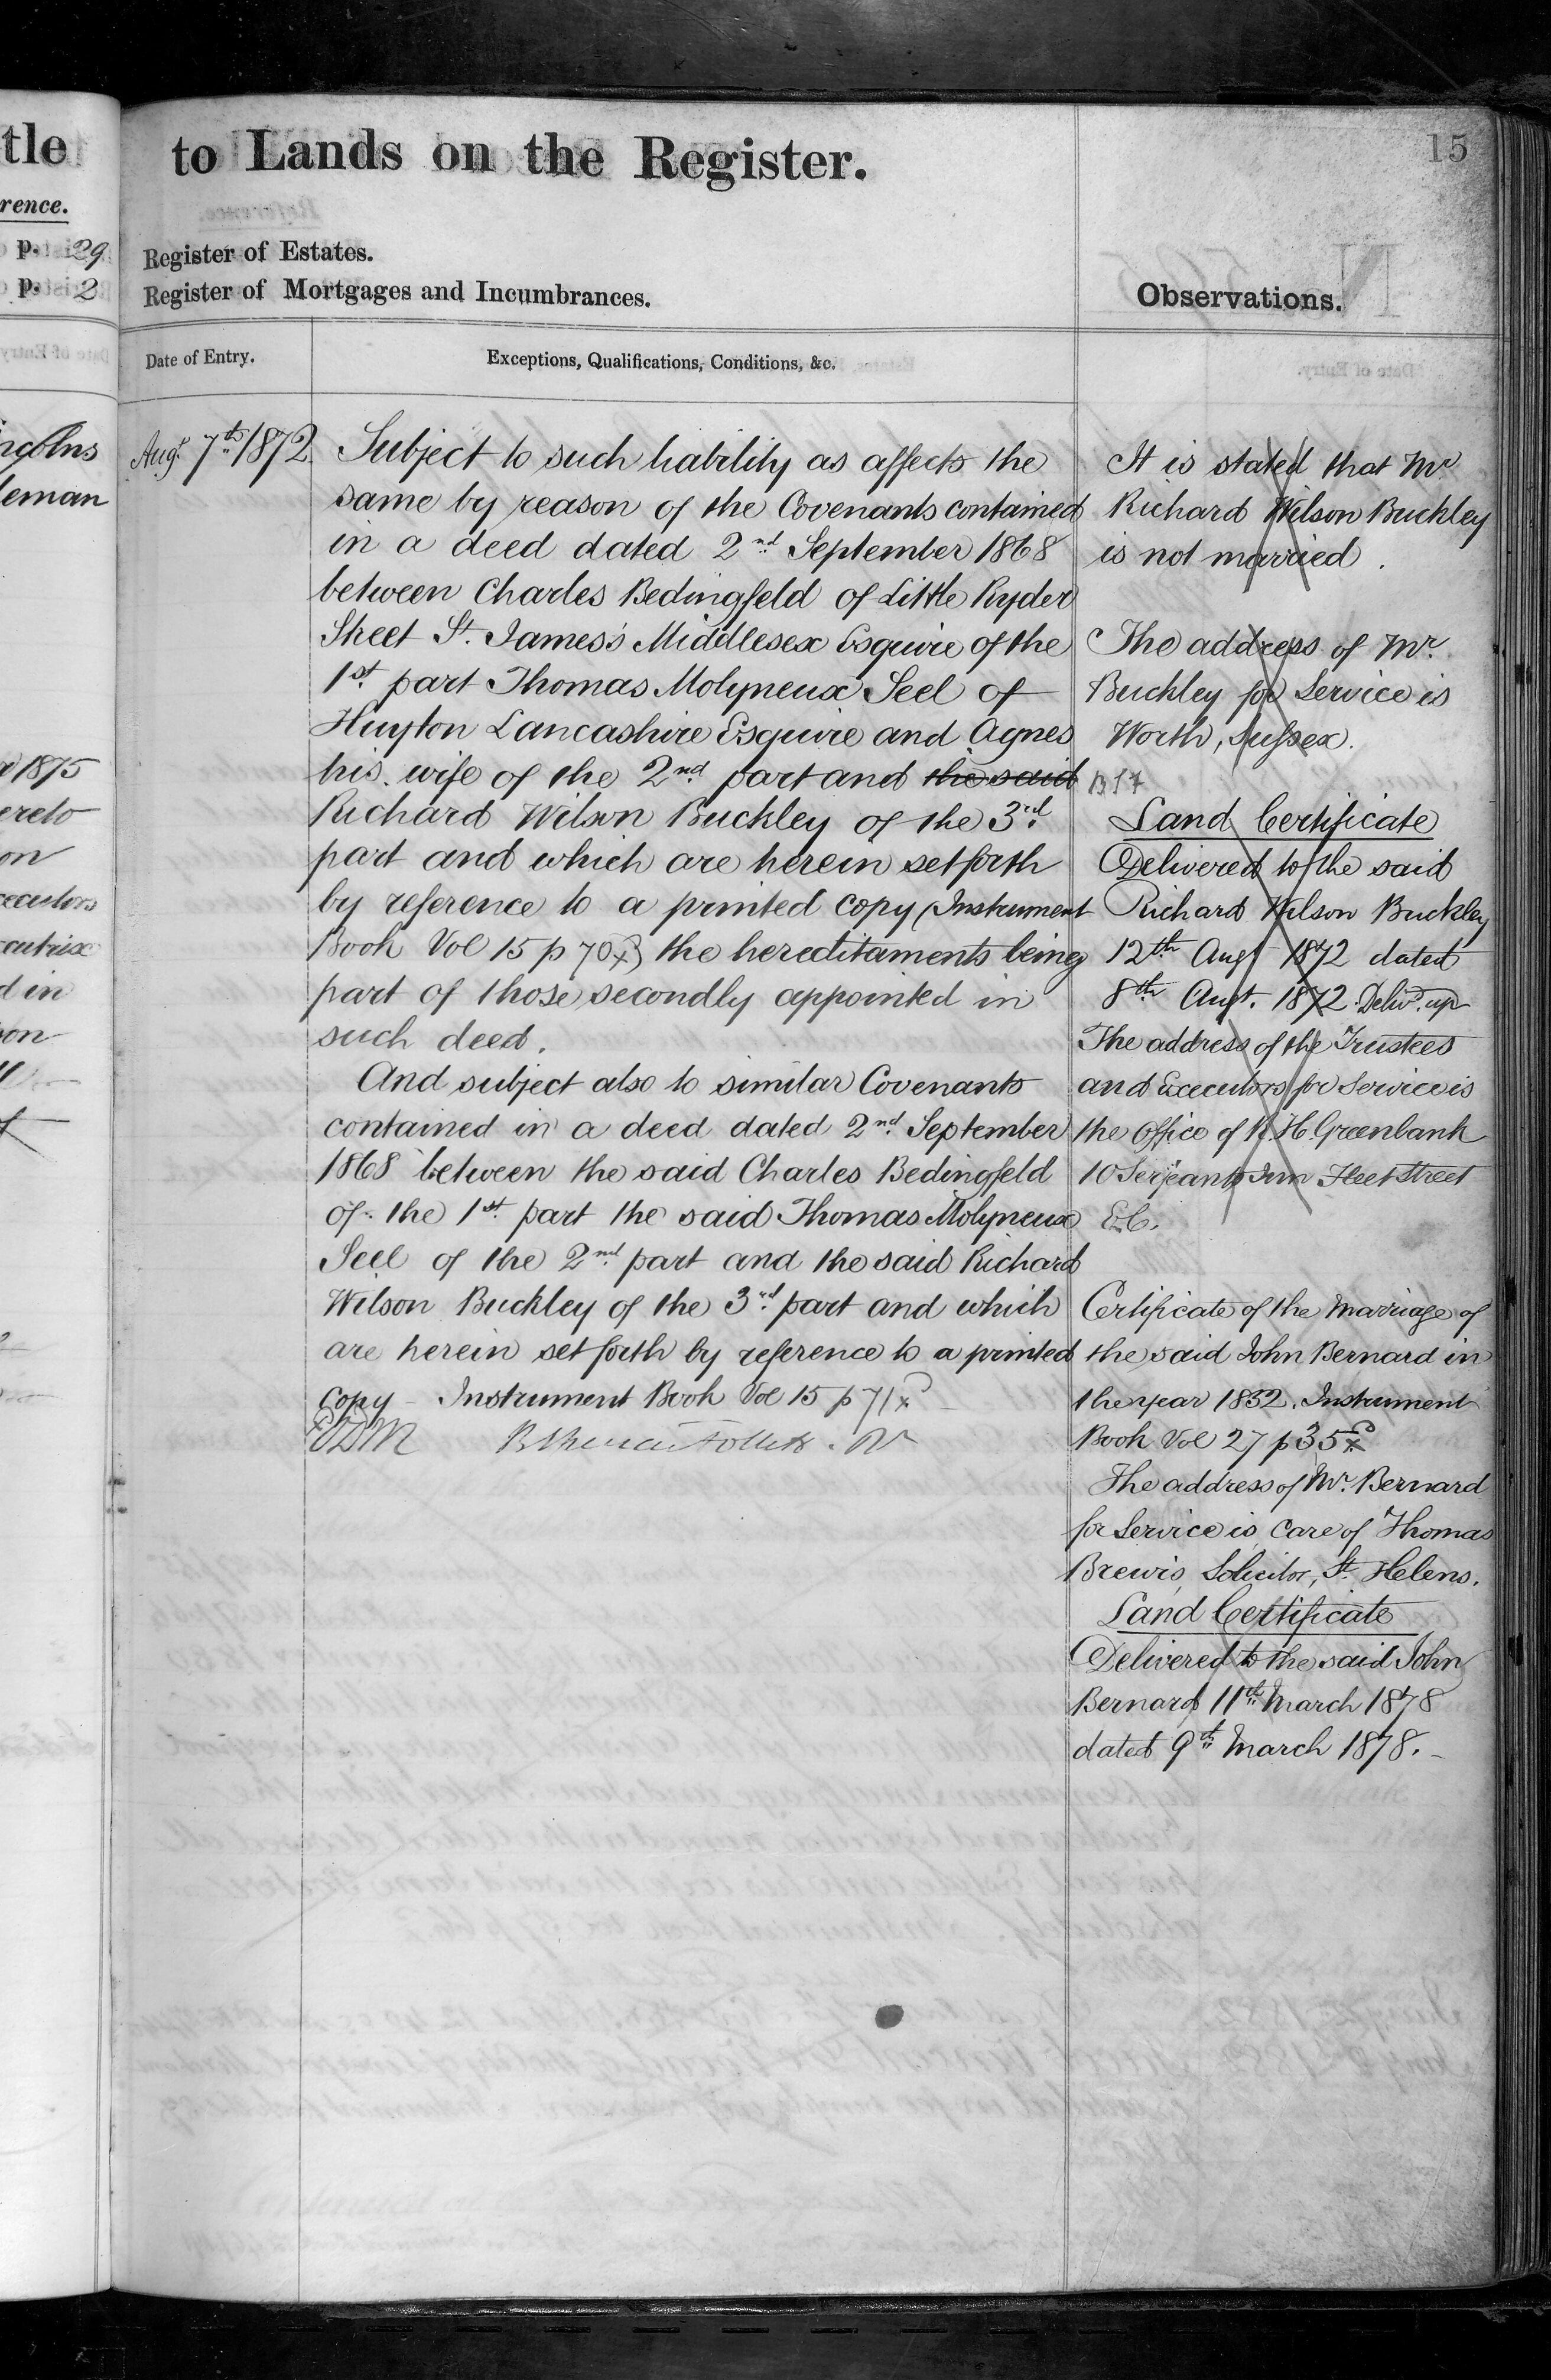 tle
rence.
p. 29
p. 2
ncolns
leman
1875
ereto
on
ecutors
ecutrix
d in
son
to Lands on the Register.
15
Register of Estates.
Register of Mortgages and Incumbrances.
Observations.
Date of Entry.
Exceptions, Qualifications, Conditions, &c.
Augt. 7th 1872.
Subject to such liability as affects the
same by reason of the Covenants contained
in a deed dated 2nd September 1868
between Charles Bedingfeld of Little Ryder
Street St. James's Middlesex Esquire of the
1st part Thomas Molyneux Seel of
Huyton Lancashire Esquire and Agnes
his wife of the 2nd part and the said
Richard Wilson Buckley of the 3rd
part and which are herein set forth
by reference to a printed copy (Instrument
Book Vol 15 p 70) the hereditaments being
part of those secondly appointed in
such deed.
And subject also to similar Covenants
contained in a deed dated 2nd September
1868 between the said Charles Bedingfeld
of the 1st part the said Thomas Molyneux
Seel of the 2nd part and the said Richard
Wilson Buckley of the 3rd part and which
are herein set forth by reference to a printed
copy - Instrument Book Vol 15 p 71
It is stated that Mr
Richard Wilson Buckley
is not married.
The address of Mr.
Buckley for Service is
Worth, Sussex.
Land Certificate
Delivered to the said
Richard Wilson Buckley
12th Augt 1872 dated
8th Augt. 1872. Delivd. up
The address of the Trustees
and Executors for Service is
the Office of R. H. Greenbank
10 Serjeants Inn Fleet Street
E.C.
Certificate of the marriage of
the said John Bernard in
the year 1832. Instrument
Book Vol 27 p 35
The address of Mr. Bernard
for Service is Care of Thomas
Brewis, Solicitor, St. Helens.
Land Certificate
Delivered to the said John
Bernard 11th March 1878
dated 9th March 1878.